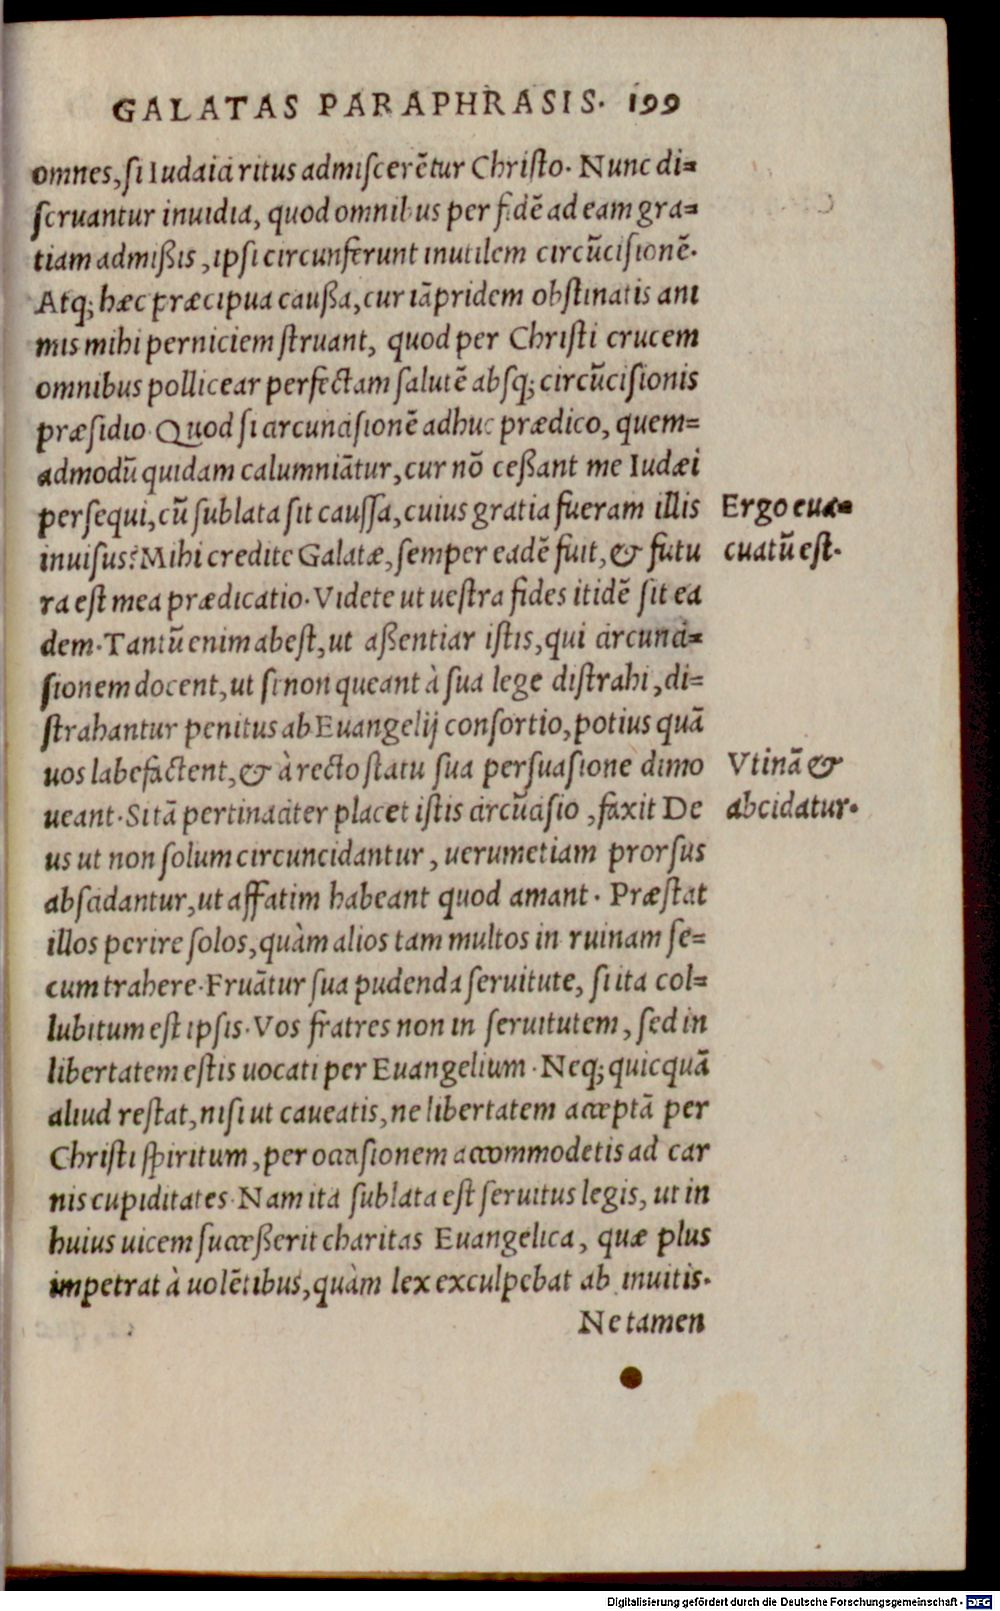 GALATAS PARAPHRASIS. 199
omnes, si Iudaici ritus admiscerẽtur Christo. Nunc di=
scruantur inuidia, quod omnibus per fidẽ ad eam gra=
tiam admißis, ipsi circunferunt inutilem circũcisionẽ.
Atq; hæc præcipua caußa, cur iãpridem obstinatis ani
mis mihi perniciem struant, quod per Christi crucem
omnibus pollicear perfectam salutẽ absq; circũcisionis
præsidio. Quod si circuncisionẽ adhuc prædico, quem=
admodũ quidam calumniãtur, cur nõ ceßant me Iudæi
persequi, cũ sublata sit caussa, cuius gratia fueram illis
inuisus? Mihi credite Galatæ, semper eadẽ fuit, & futu
ra est mea prædicatio. Videte ut uestra fides itidẽ sit ea
dem. Tantũ enim abest, ut aßentiar istis, qui circunci=
sionem docent, ut si non queant à sua lege distrahi, di=
strahantur penitus ab Euangelij consortio, potius quã
uos labefactent, & à recto statu sua persuasione dimo
ueant. Si tã pertinaciter placet istis circũcisio, faxit De
us ut non solum circuncidantur, uerumetiam prorsus
abscidantur, ut affatim habeant quod amant. Præstat
illos perire solos, quàm alios tam multos in ruinam se=
cum trahere. Fruãtur sua pudenda seruitute, si ita col=
lubitum est ipsis. Vos fratres non in seruitutem, sed in
libertatem estis uocati per Euangelium. Neq; quicquã
aliud restat, nisi ut caueatis, ne libertatem acceptã per
Christi spiritum, per occasionem accommodetis ad car
nis cupiditates. Nam ita sublata est seruitus legis, ut in
huius uicem succeßerit charitas Euangelica, quæ plus
impetrat à uolẽtibus, quàm lex exculpebat ab inuitis.
Ne tamen
Ergo eua=
cuatũ est.
Vtinã &
abcidatur.
Digitalisierung gefördert durch die Deutsche Forschungsgemeinschaft - DFG